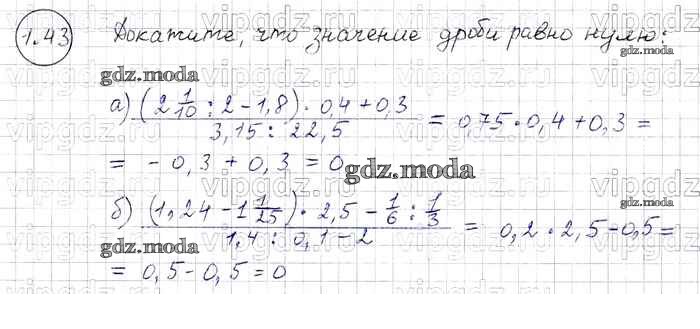 1.43 Докажите, что значение дроби равно нулю:
gdz.moda
а) (2 1/10 : 2 - 1,8) · 0,4 + 0,3 / 3,15 : 22,5 = 0,75 · 0,4 + 0,3 =
= - 0,3 + 0,3 = 0
gdz.moda
б) (1,24 - 1 1/25) · 2,5 - 1/6 : 1/3 / 1,4 : 0,1 - 2 = 0,2 · 2,5 - 0,5 =
gdz.moda
= 0,5 - 0,5 = 0